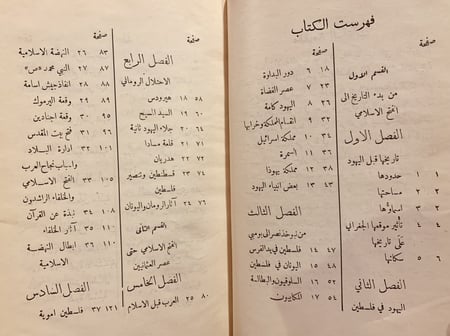 فهرست الكتاب
صفحة
القسم الاول
من بدء التاريخ الى
الفتح الاسلامي
الفصل الاول
تاريخها قبل اليهود
١ ١ حدودها
٢ ٢ مساحتها
٢ ٣ اسماؤها
٤ ٤ تأثير موقعها الجغرافي
على تاريخها
٦ ٥ سكانها
الفصل الثاني
اليهود في فلسطين
صفحة
١٨ ٦ دور البداوة
٢٣ ٧ عصر القضاة
٢٦ ٨ اليهود كامة
٣٢ ٩ انقسام المملكة وخرابها
٣٤ ١٠ مملكة اسرائيل
٣٦ ١١ السمرة
٣٨ ١٢ مملكة يهوذا
٤٣ ١٣ بعض انبياء اليهود
الفصل الثالث
من نبوخذنصر الى بومبي
٤٧ ١٤ فلسطين في يد الفرس
٤٨ ١٥ اليونان في فلسطين
٥٢ ١٦ السلوقيون والبطالسة
٥٤ ١٧ المكابيون
صفحة
الفصل الرابع
الاحتلال الروماني
٥٨ ١٨ هيرودس
٦٠ ١٩ السيد المسيح
٦٤ ٢٠ جلاء اليهود ثانية
٧١ ٢١ قلعة مسادا
٧٢ ٢٢ هدريان
٧٤ ٢٣ قسطنطين وتنصير
فلسطين
٧٦ ٢٤ آثار الرومان واليونان
القسم الثاني
الفتح الاسلامي حتى
عصر العثمانيين
الفصل الخامس
٨٠ ٢٥ العرب قبل الاسلام
صفحة
٨٣ ٢٦ النهضة الاسلامية
٨٧ ٢٧ النبي محمد «ص»
٨٨ ٢٨ انفاذ جيش اسامة
٨٩ ٢٩ وقعة اليرموك
٩٦ ٣٠ وقعة اجنادين
٩٦ ٣١ فتح بيت المقدس
١٠١ ٣٢ ادارة البلاد
واسباب نجاح العرب
١٠٥ ٣٣ الفتح الاسلامي
والخلفاء الراشدون
١٠٨ ٣٤ نبذة عن القرآن
١١٠ ٣٥ آثار الخلفاء
١١٠ ٣٦ ابطال النهضة
الاسلامية
الفصل السادس
١٢١ ٣٧ فلسطين اموية